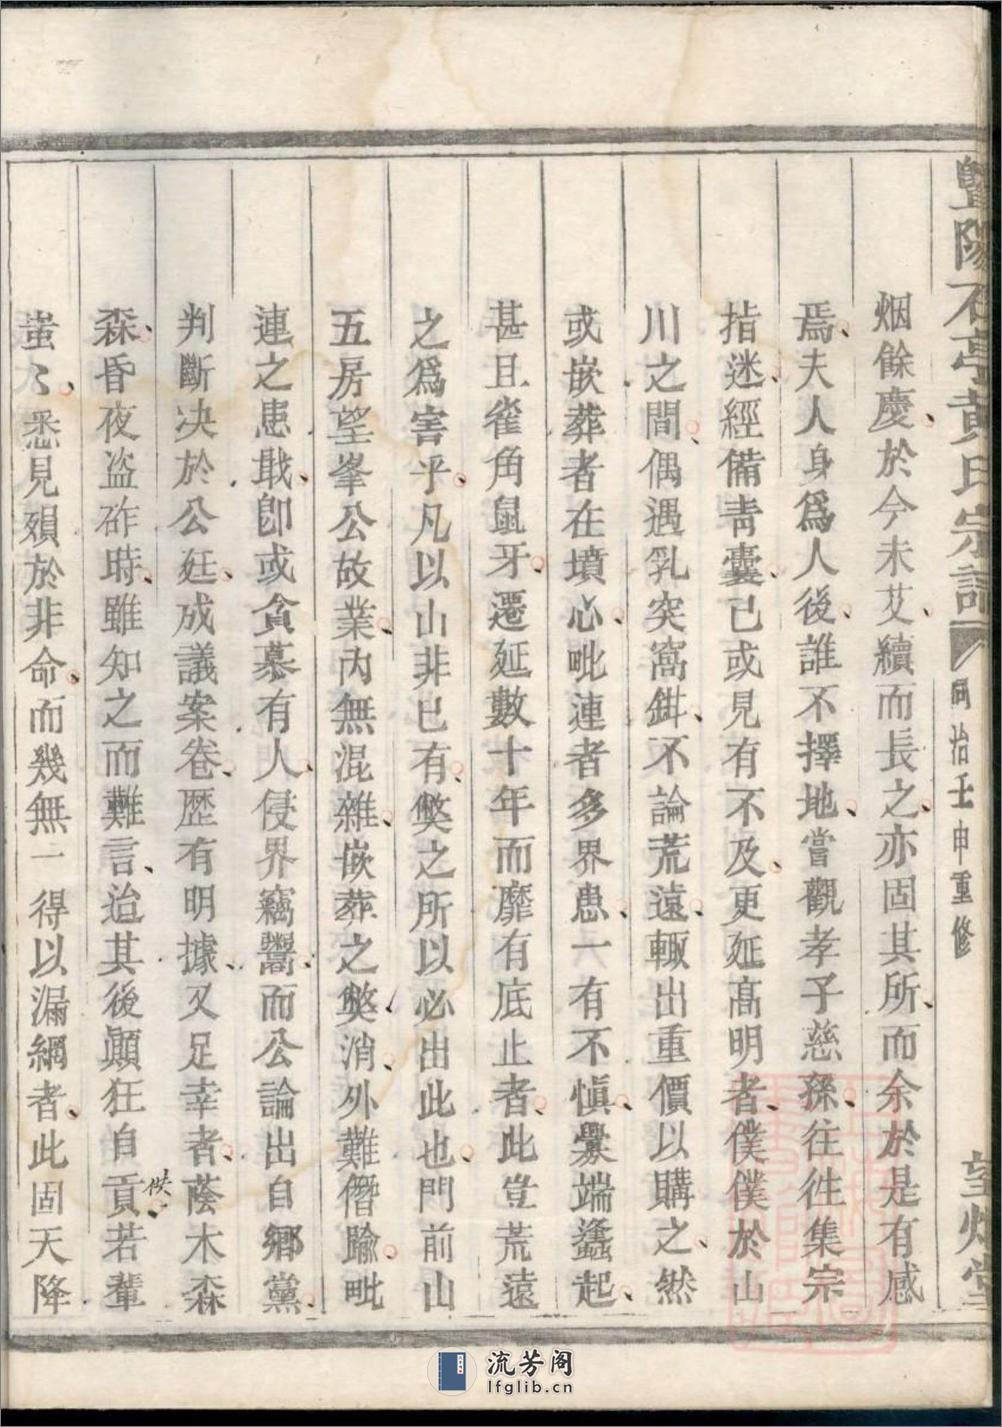 暨陽石亭黃氏宗譜 同治壬申重修
烟餘慶於今未艾續而長之亦固其所而余於是有感
焉夫人身爲人後誰不擇地嘗觀孝子慈孫往往集宗
指迷經備靑囊已或見有不及更延高明者僕僕於山
川之間偶遇乳突窩鉗不論荒遠輙出重價以購之然
或嵌葬者在墳心毗連者多界患一有不慎釁端蠭起
甚且雀角鼠牙遷延數十年而靡有底止者此豈荒遠
之爲害乎凡以山非已有獘之所以必出此也門前山
五房望峯公故業內無混雜嵌葬之獘消外難僭踰毗
連之患戢卽或貪慕有人侵界竊鬻而公論出自鄉黨
判斷决於公廷成議案卷歷有明據又足幸者蔭木森
森昏夜盗斫時雖知之而難言迨其後顚狂自貢若輩
蚩〻悉見殞於非命而幾無一得以漏網者此固天降
流芳阁
lfglib.cn